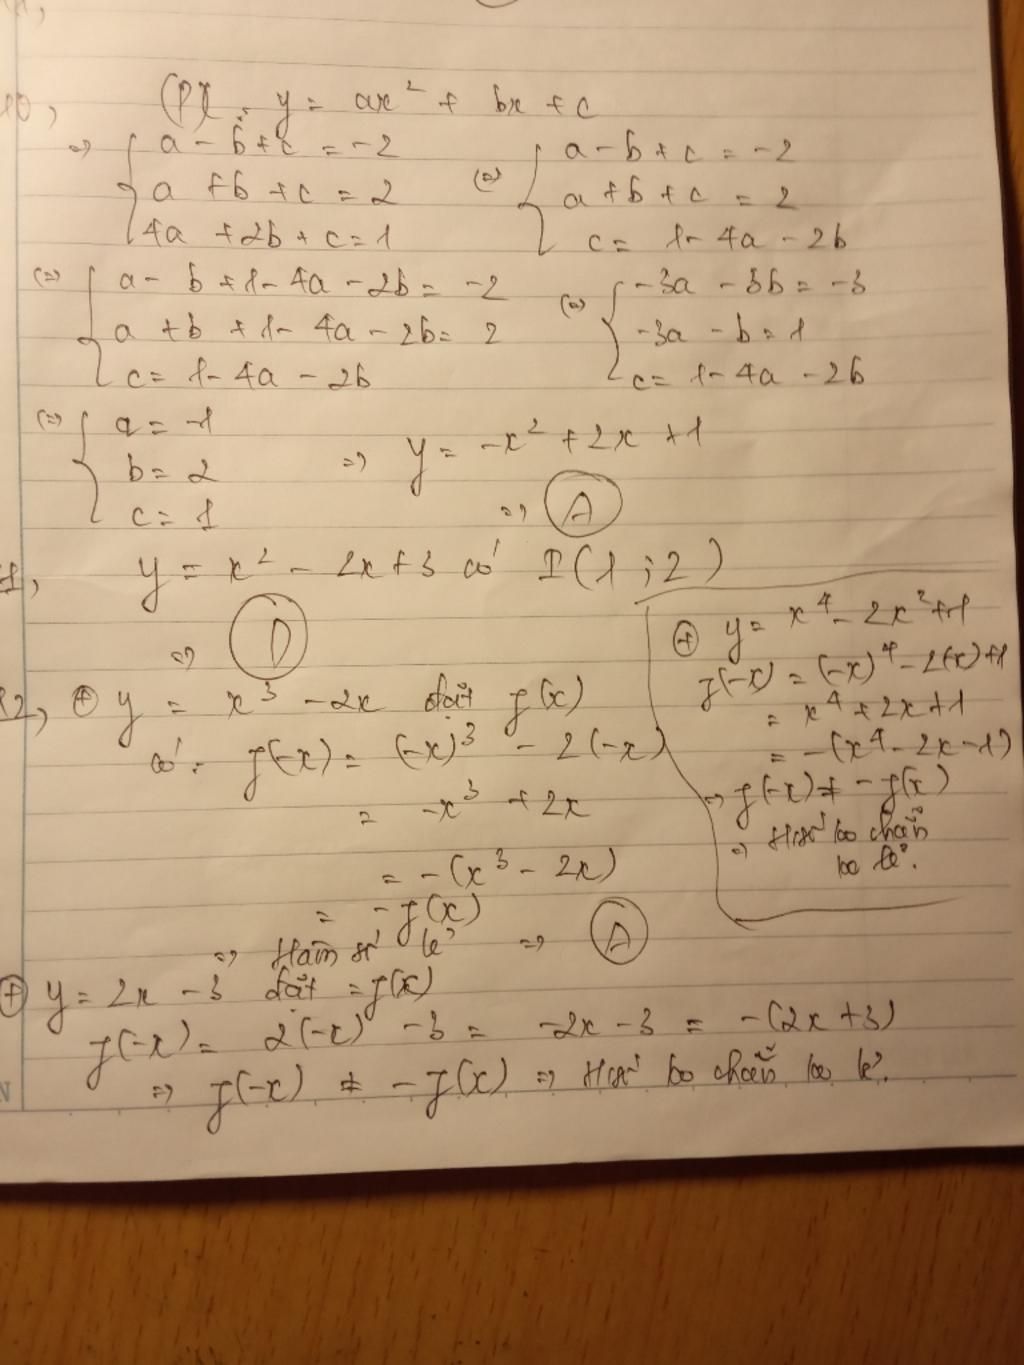 10, (P): y = ax² + bx + c
=> { a - b + c = -2
a + b + c = 2
4a + 2b + c = 1
(=) { a - b + c = -2
a + b + c = 2
c = 1 - 4a - 2b
(=) { a - b + 1 - 4a - 2b = -2
a + b + 1 - 4a - 2b = 2
c = 1 - 4a - 2b
(=) { -3a - 3b = -3
-3a - b = 1
c = 1 - 4a - 2b
(=) { a = -1
b = 2
c = 1
=> y = -x² + 2x + 1
=> A
1, y = x² - 2x + 3 có I(1 ; 2)
=> D
12, ⊕ y = x³ - 2x đặt f(x)
có: f(-x) = (-x)³ - 2(-x)
= -x³ + 2x
= -(x³ - 2x)
= -f(x)
=> Hàm số lẻ => A
⊕ y = x⁴ - 2x² + 1
f(-x) = (-x)⁴ - 2(x) + 1
= x⁴ + 2x + 1
= -(x⁴ - 2x - 1)
=> f(-x) ≠ -f(x)
=> Hsố ko chẵn
ko lẻ.
⊕ y = 2x - 3 đặt = f(x)
f(-x) = 2(-x) - 3 = -2x - 3 = -(2x + 3)
=> f(-x) ≠ -f(x) => Hsố ko chẵn ko lẻ.